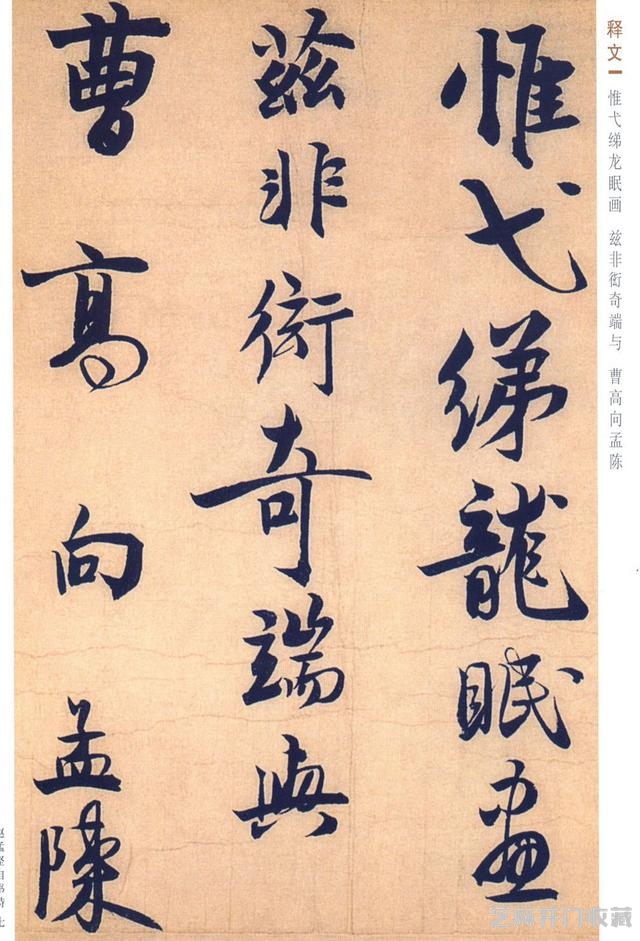 释文
惟弋绨龙眠画 兹非衒奇端与 曹高向孟陈
惟弋绨龍眠畫
兹非衒奇端與
曹高向孟陳
赵孟坚自书诗 七
芝麻开门收藏